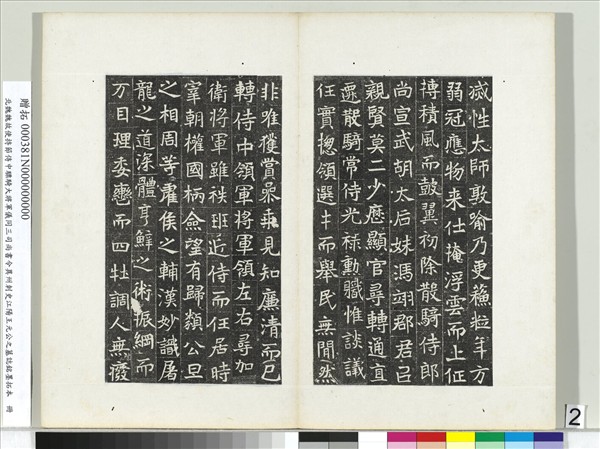 滅性太師敦喻乃更蘓粒年方
弱冠應物来仕掩浮雲而上征
摶積風而鼓翼初除散騎侍郎
尚宣武胡太后妹馮翊郡君以
親賢莫二少歷顯官尋轉通直
遷散騎常侍光祿勳職惟談議
任實揔領選才而舉民無閒然
非唯獲賞㬥乘見知廉清而已
轉侍中領軍將軍領左右尋加
衛將軍雖秩班近侍而任居時
宰朝權國柄僉望有歸類公旦
之相周等霍侯之輔漢妙識屠
龍之道深體亨鮮之術振綱而
万目理委轡而四牡調人無癈
贈拓 000381N000000000
北魏魏故使持節侍中驃騎大將軍儀同三司尚書令冀州刺史江陽王元公之墓誌銘墨拓本 冊
2